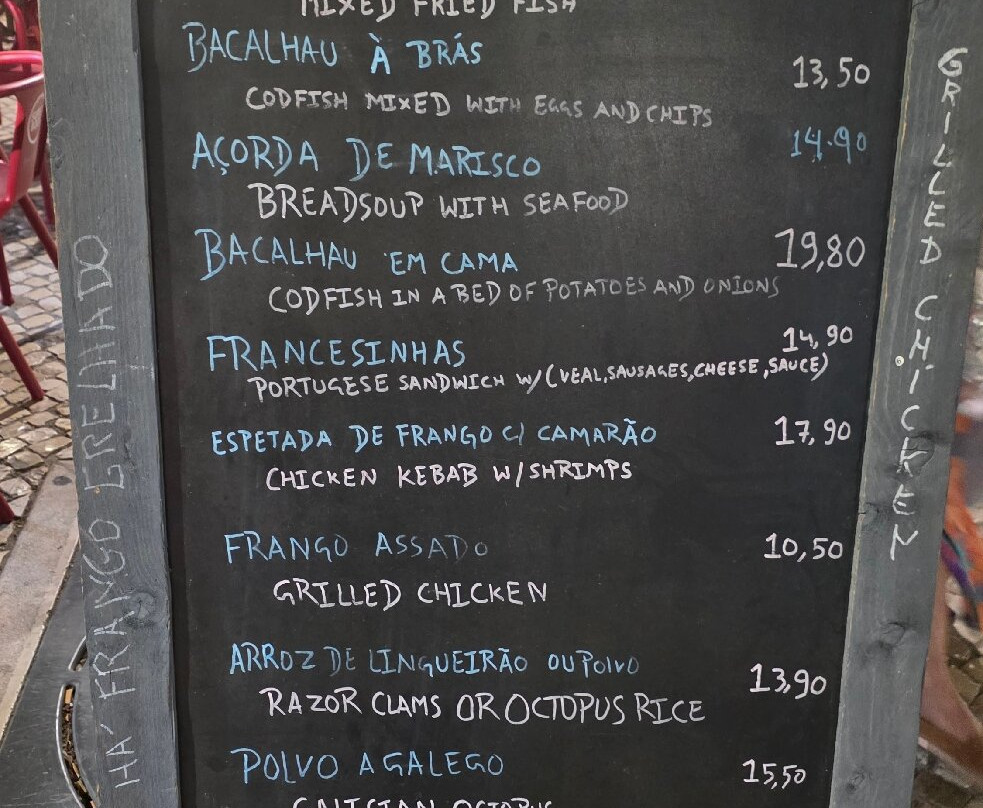 MIXED FRIED FISH
BACALHAU À BRÁS 13,50
CODFISH MIXED WITH EGGS AND CHIPS
AÇORDA DE MARISCO 14.90
BREADSOUP WITH SEAFOOD
BACALHAU EM CAMA 19,80
CODFISH IN A BED OF POTATOES AND ONIONS
FRANCESINHAS 14,90
PORTUGESE SANDWICH W/(VEAL,SAUSAGES,CHEESE,SAUCE)
ESPETADA DE FRANGO C/ CAMARÃO 17,90
CHICKEN KEBAB W/SHRIMPS
FRANGO ASSADO 10,50
GRILLED CHICKEN
ARROZ DE LINGUEIRÃO OU POLVO 13,90
RAZOR CLAMS OR OCTOPUS RICE
POLVO A GALEGO 15,50
GALICIAN OCTOPUS
HA' FRANGO GRELHADO
GRILLED CHICKEN